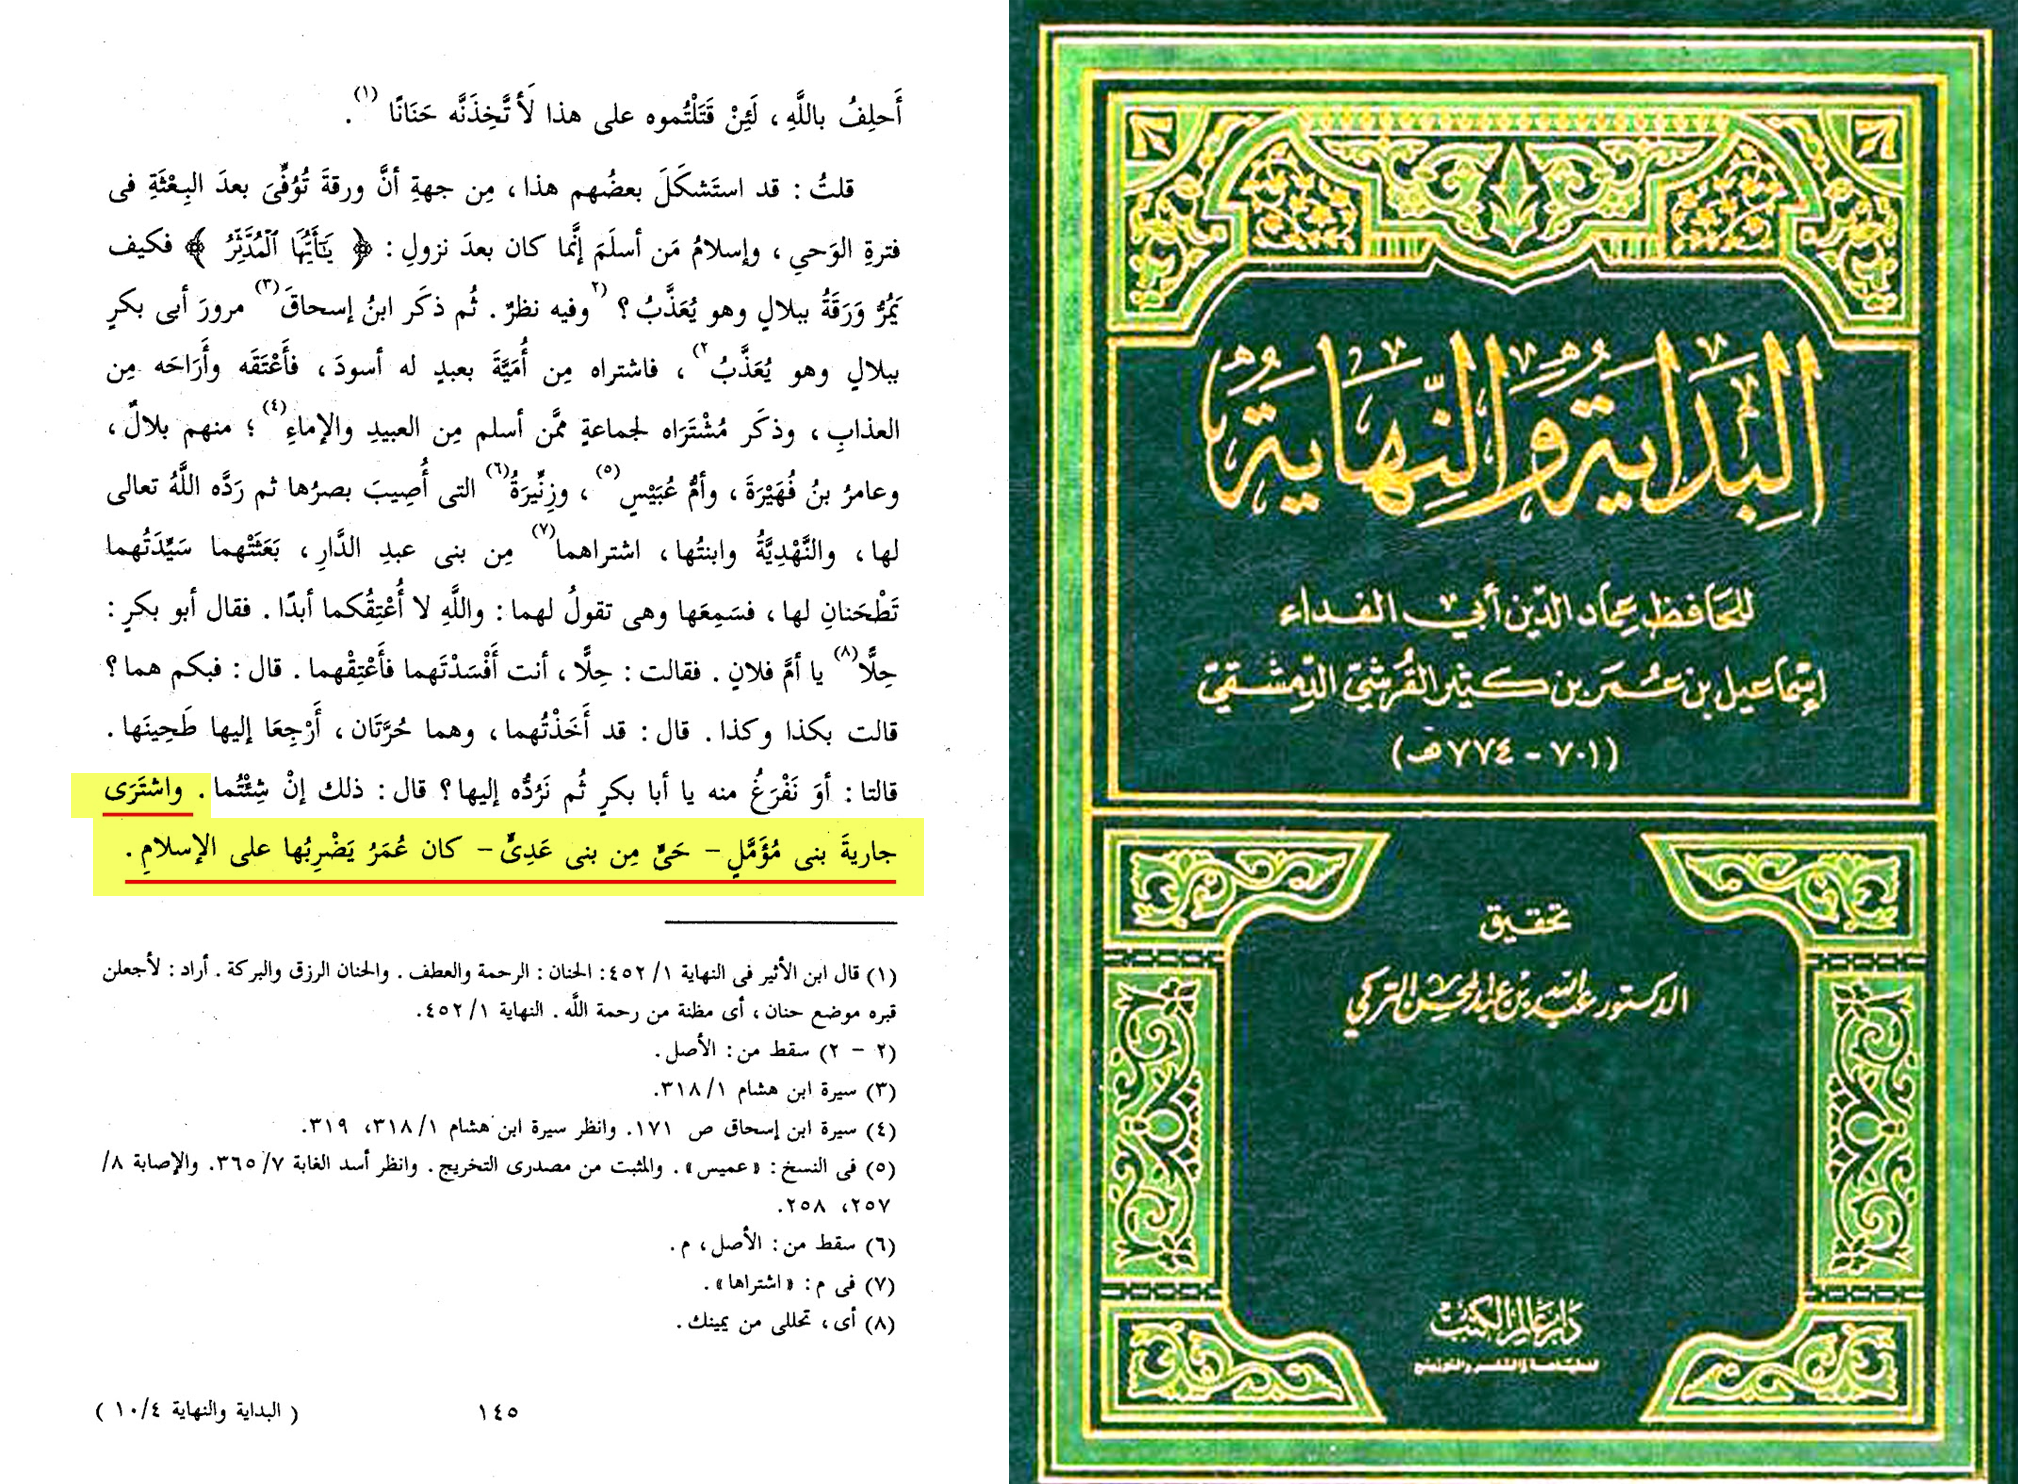 أَحلِفُ باللَّهِ، لَئِنْ قَتَلْتُموه على هذا لَأَتَّخِذَنَّه حَنَانًا (١).
قلتُ: قد استَشكَلَ بعضُهم هذا، مِن جهةِ أنَّ ورقةَ تُوُفِّىَ بعدَ البِعْثَةِ فى
فترةِ الوَحيِ، وإسلامُ مَن أسلَمَ إنَّما كان بعدَ نزولِ: ﴿ يَٰٓأَيُّهَا ٱلۡمُدَّثِّرُ ﴾ فكيف
يَمُرُّ وَرَقَةُ ببلالٍ وهو يُعَذَّبُ؟ (٢ وفيه نظرٌ. ثُم ذكَر ابنُ إسحاقَ (٣) مرورَ أبى بكرٍ
ببلالٍ وهو يُعَذَّبُ ٢)، فاشتراه مِن أُمَيَّةَ بعبدٍ له أسودَ، فأَعْتَقَه وأَرَاحَه مِن
العذابِ، وذكَر مُشْتَرَاه لجماعةٍ ممَّن أسلم مِن العبيدِ والإماءِ (٤)؛ منهم بلالٌ،
وعامرُ بنُ فُهَيْرَةَ، وأمُّ عُبَيْسٍ (٥)، وزِنِّيرَةُ (٦) التى أُصِيبَ بصرُها ثم رَدَّه اللَّهُ تعالى
لها، والنَّهْدِيَّةُ وابنتُها، اشتراهما (٧) مِن بنى عبدِ الدَّارِ، بَعَثَتْهما سَيِّدَتُهما
تَطْحَنانِ لها، فسَمِعَها وهى تقولُ لهما: واللَّهِ لا أُعْتِقُكما أبدًا. فقال أبو بكرٍ:
حِلًّا (٨) يا أمَّ فلانٍ. فقالت: حِلًّا، أنت أَفْسَدْتَهما فأَعْتِقْهما. قال: فبكم هما؟
قالت بكذا وكذا. قال: قد أَخَذْتُهما، وهما حُرَّتَان، أَرْجِعَا إليها طَحِينَها.
قالتا: أوَ نَفْرَغُ منه يا أبا بكرٍ ثُم نَرُدُّه إليها؟ قال: ذلك إنْ شِئْتُما. واشتَرَى
جاريةَ بنى مُؤَمَّلٍ - حَىٌّ مِن بنى عَدِىٍّ - كان عُمَرُ يَضْرِبُها على الإسلامِ.
(١) قال ابن الأثير فى النهاية ١/ ٤٥٢: الحنان: الرحمة والعطف. والحنان الرزق والبركة. أراد: لأجعلن
قبره موضع حنان، أى مظنة من رحمة اللَّه. النهاية ١/ ٤٥٢.
(٢ - ٢) سقط من: الأصل.
(٣) سيرة ابن هشام ١/ ٣١٨.
(٤) سيرة ابن إسحاق ص ١٧١. وانظر سيرة ابن هشام ١/ ٣١٨، ٣١٩.
(٥) فى النسخ: «عميس». والمثبت من مصدرى التخريج. وانظر أسد الغابة ٧/ ٣٦٥. والإصابة ٨/
٢٥٧، ٢٥٨.
(٦) سقط من: الأصل، م.
(٧) فى م: «اشتراها».
(٨) أى، تحللى من يمينك.
١٤٥
( البداية والنهاية ١٠/٤ )
البداية والنهاية
للحافظ عماد الدين أبي الفداء
إسماعيل بن عمر بن كثير القرشي الدمشقي
(٧٠١ - ٧٧٤ هـ)
تحقيق
الدكتور عبد الله بن عبد المحسن التركي
دار عالم الكتب
للطباعة والنشر والتوزيع